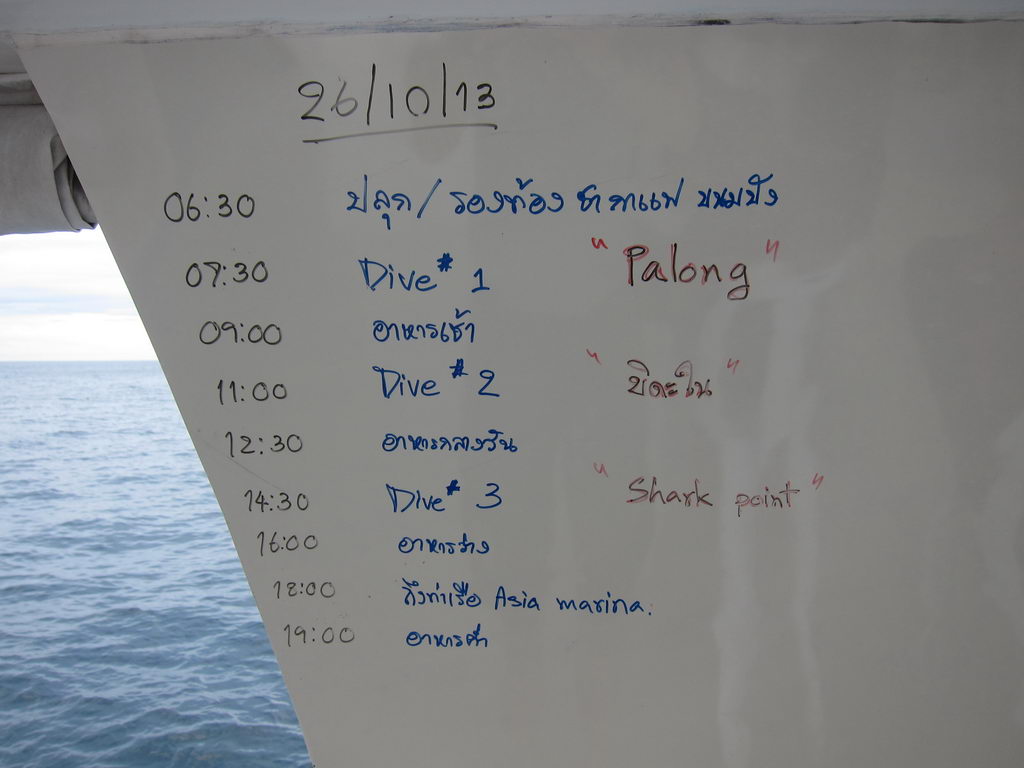 26/10/13
06:30 ปลุก / รองท้อง ชา กาแฟ ขนมปัง
07:30 Dive # 1 "Palong"
09:00 อาหารเช้า
11:00 Dive # 2 "บิดะใน"
12:30 อาหารกลางวัน
14:30 Dive # 3 "Shark point"
16:00 อาหารว่าง
18:00 ถึงท่าเรือ Asia marina.
19:00 อาหารค่ำ